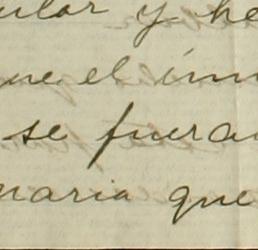 ular y he
que el inm
se fueran
naria que